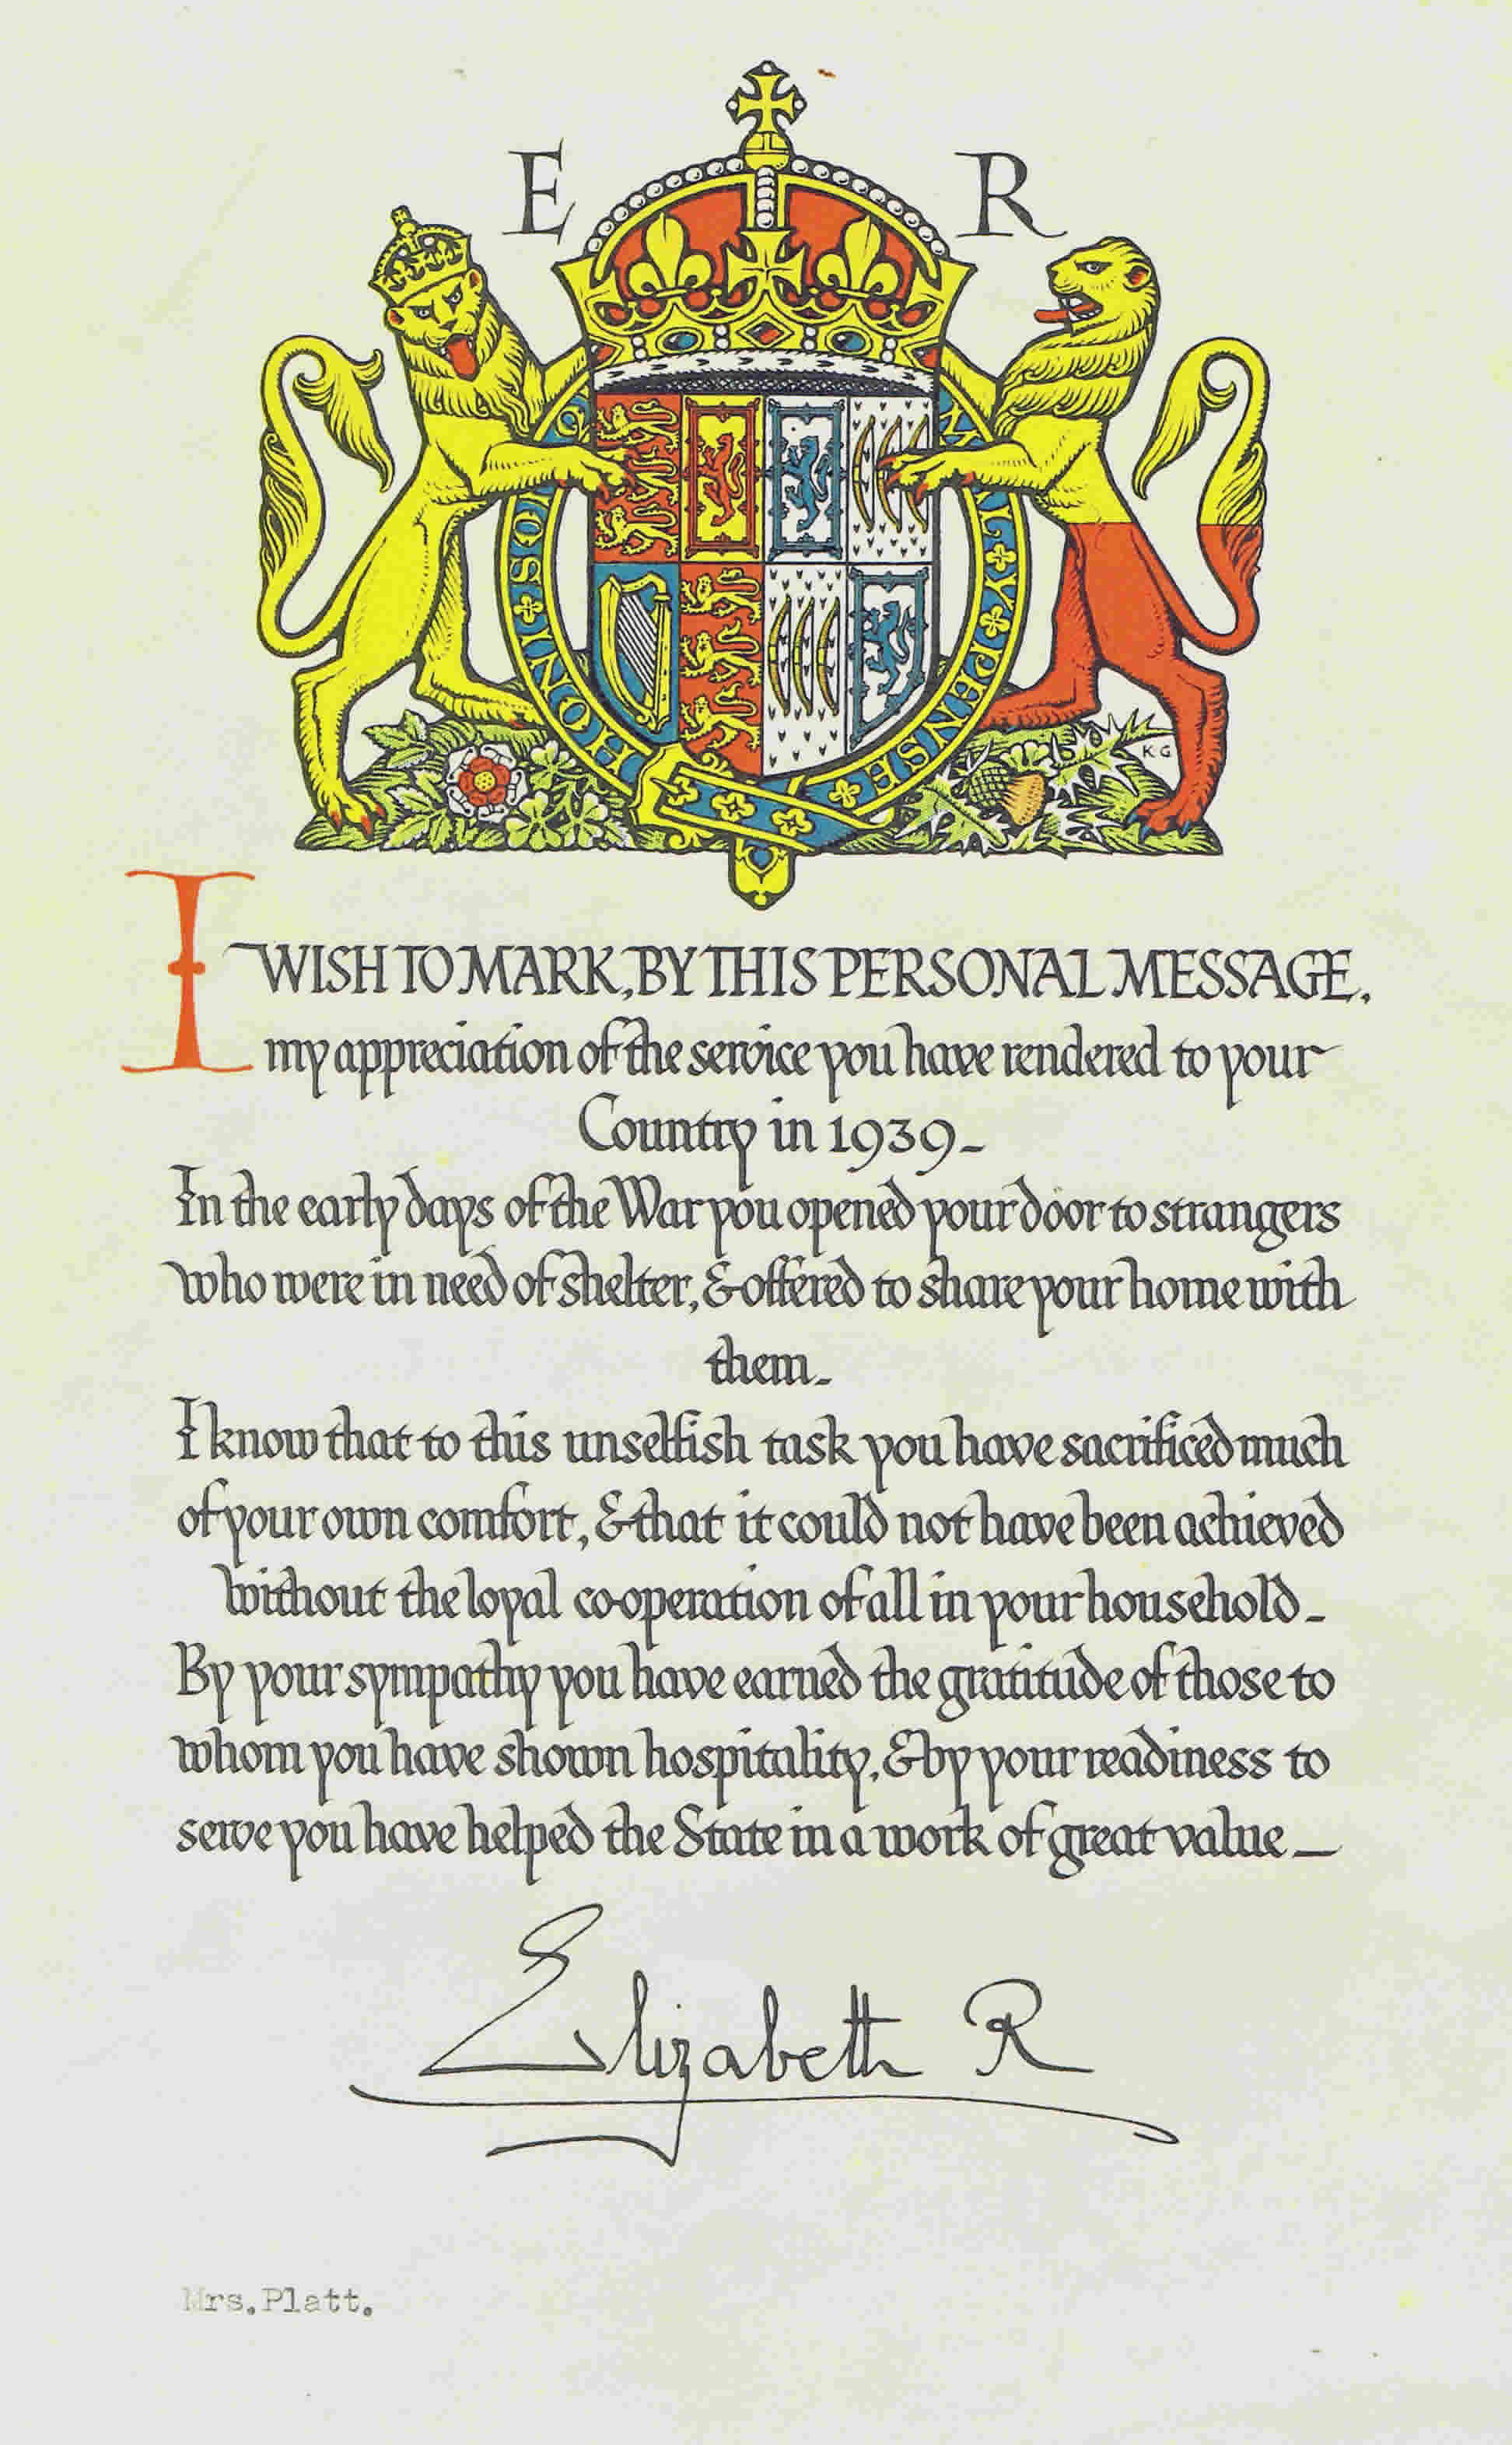 E R
HONI·SOI·Q MAL·Y·PENSE
K G
I WISH TO MARK, BY THIS PERSONAL MESSAGE,
my appreciation of the service you have rendered to your
Country in 1939-
In the early days of the War you opened your door to strangers
who were in need of shelter, & offered to share your home with
them-
I know that to this unselfish task you have sacrificed much
of your own comfort, & that it could not have been achieved
without the loyal co-operation of all in your household-
By your sympathy you have earned the gratitude of those to
whom you have shown hospitality, & by your readiness to
serve you have helped the State in a work of great value—
Elizabeth R
Mrs.Platt.